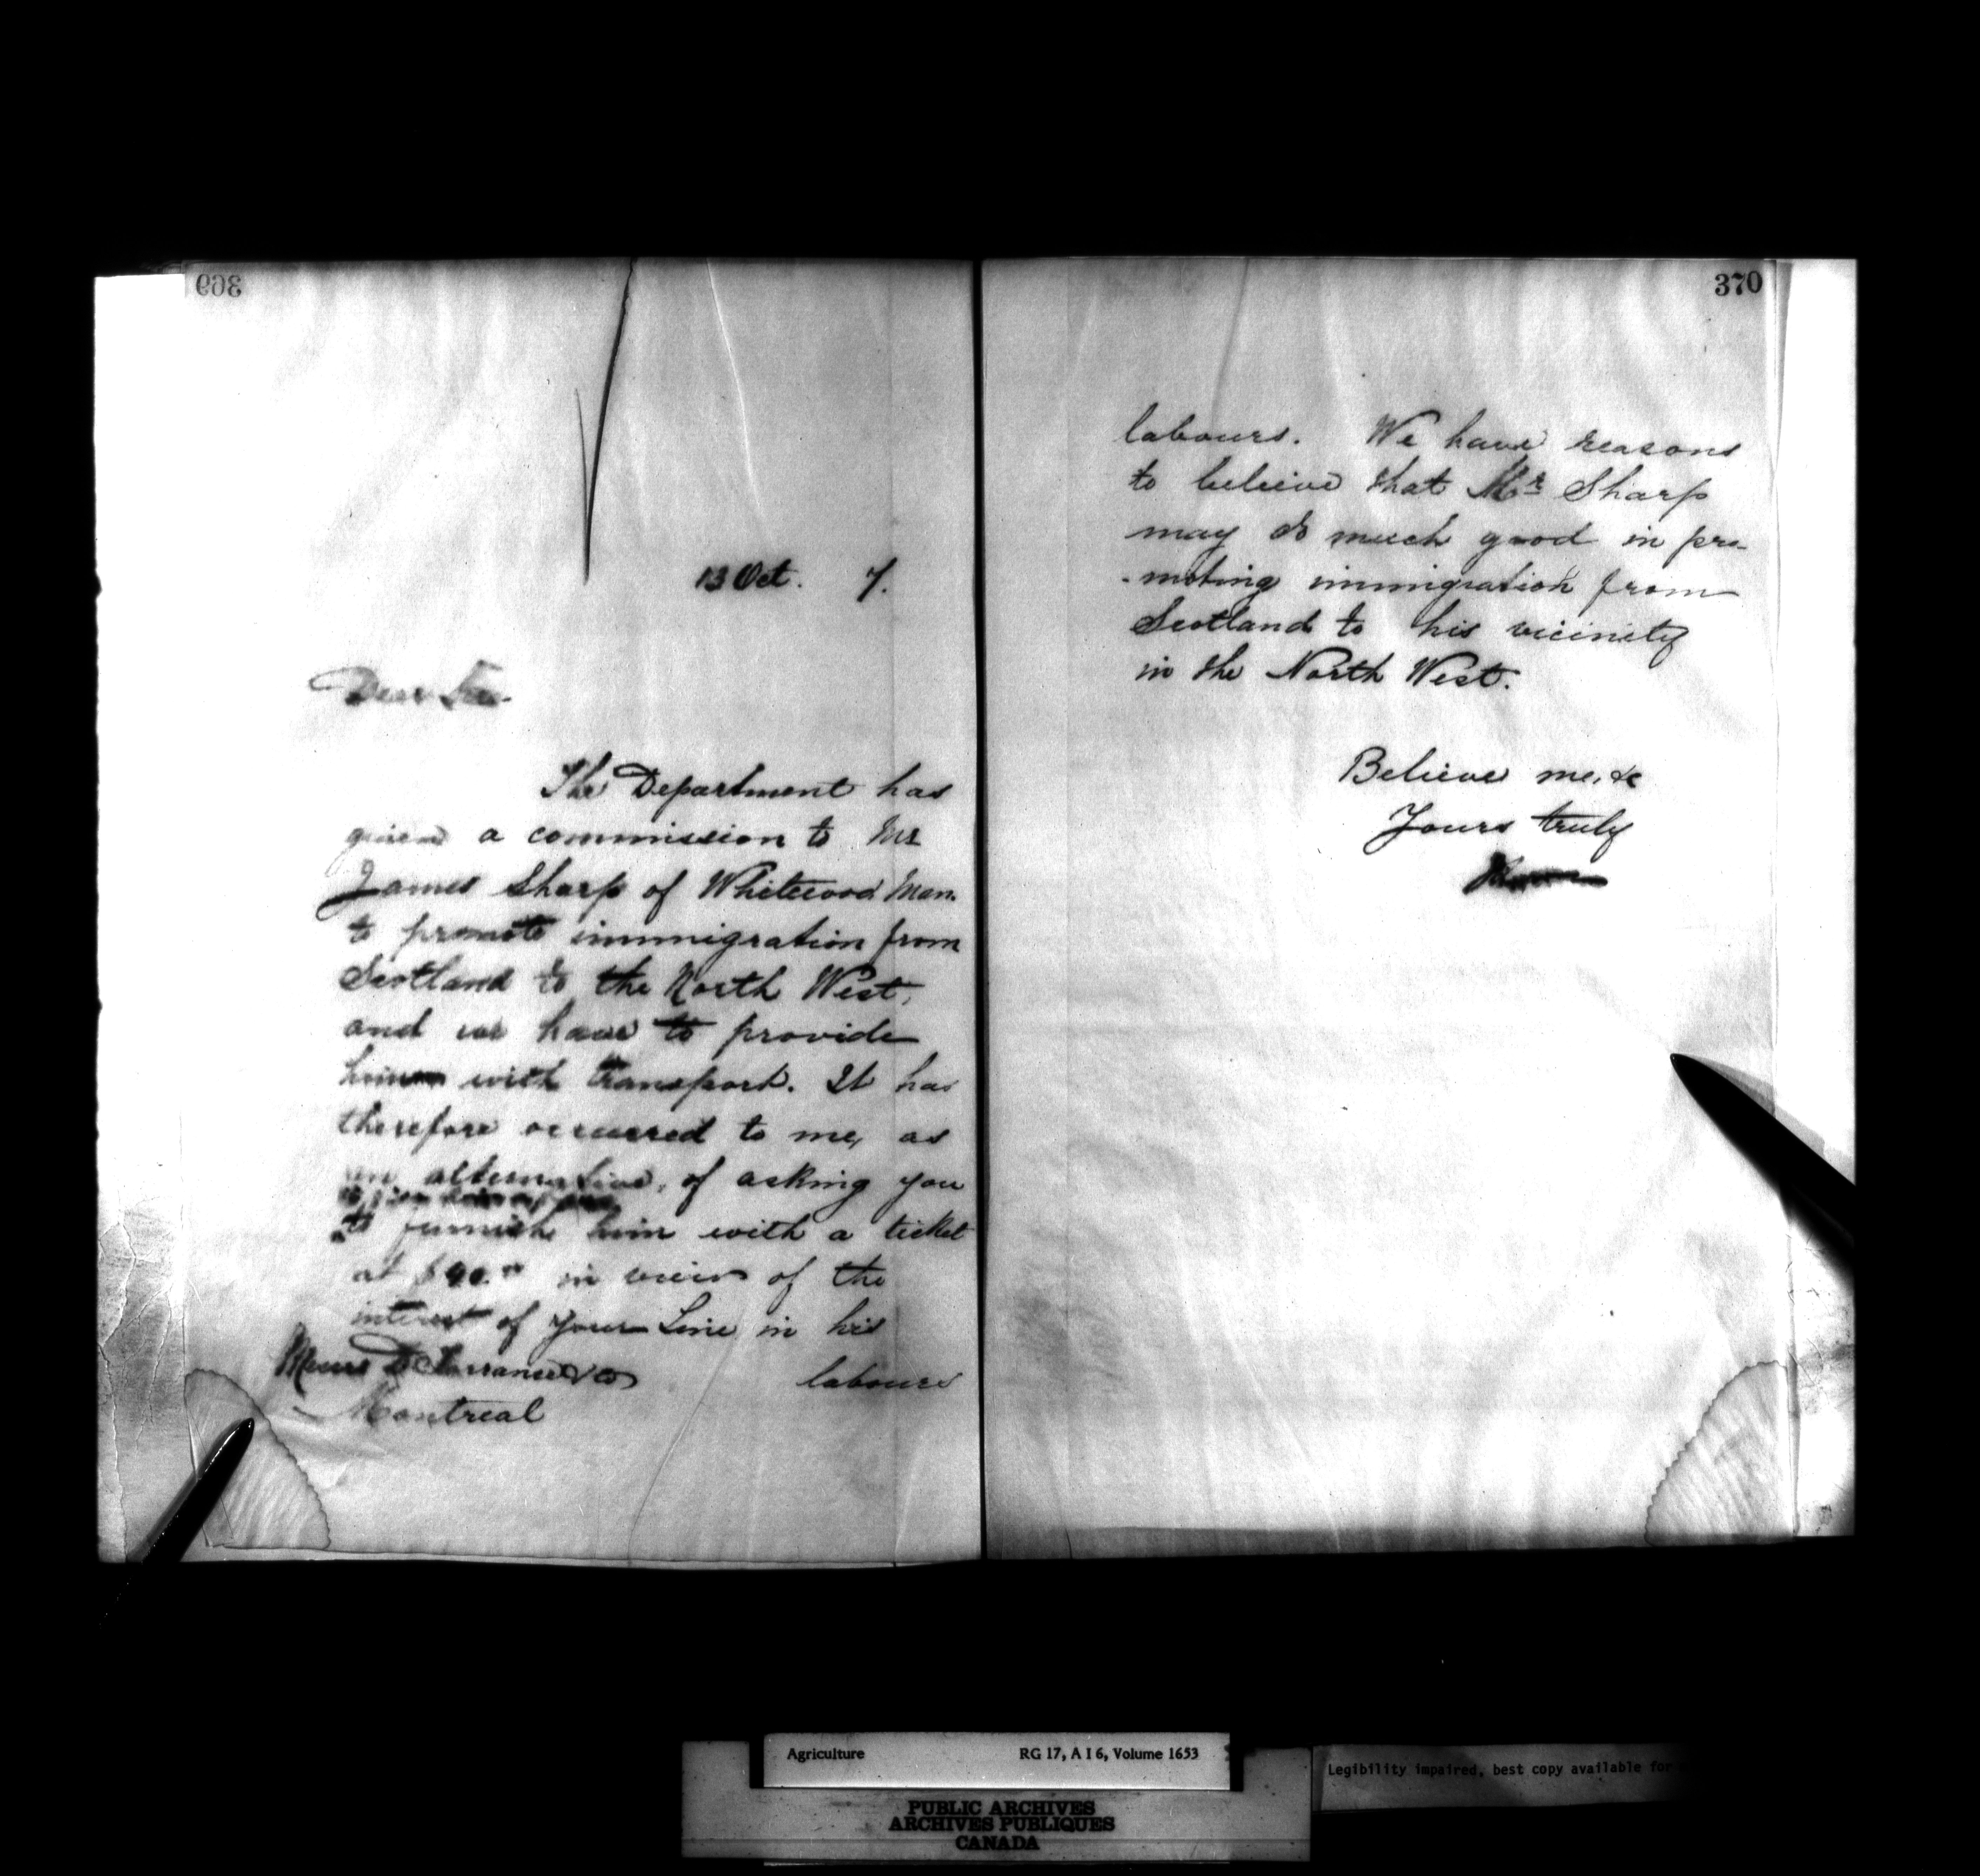 369
13 Oct. 7.
Dear Sir
The Department has
given a commission to Mr
James Sharp of Whitewood Man.
to promote immigration from
Scotland to the North West,
and we have to provide
him with transport. It has
therefore occurred to me, as
an alternative, of asking you
to furnish him with a ticket
at in view of the
interest of your Line in his
labours
Messrs D Torrance & Co
Montreal
370
labours. We have reasons
to believe that Mr Sharp
may do much good in pro-
-moting immigration from
Scotland to his vicinity
in the North West.
Believe me, &c
Yours truly
Agriculture RG 17, A I 6, Volume 1653
Legibility impaired, best copy available for
PUBLIC ARCHIVES
ARCHIVES PUBLIQUES
CANADA